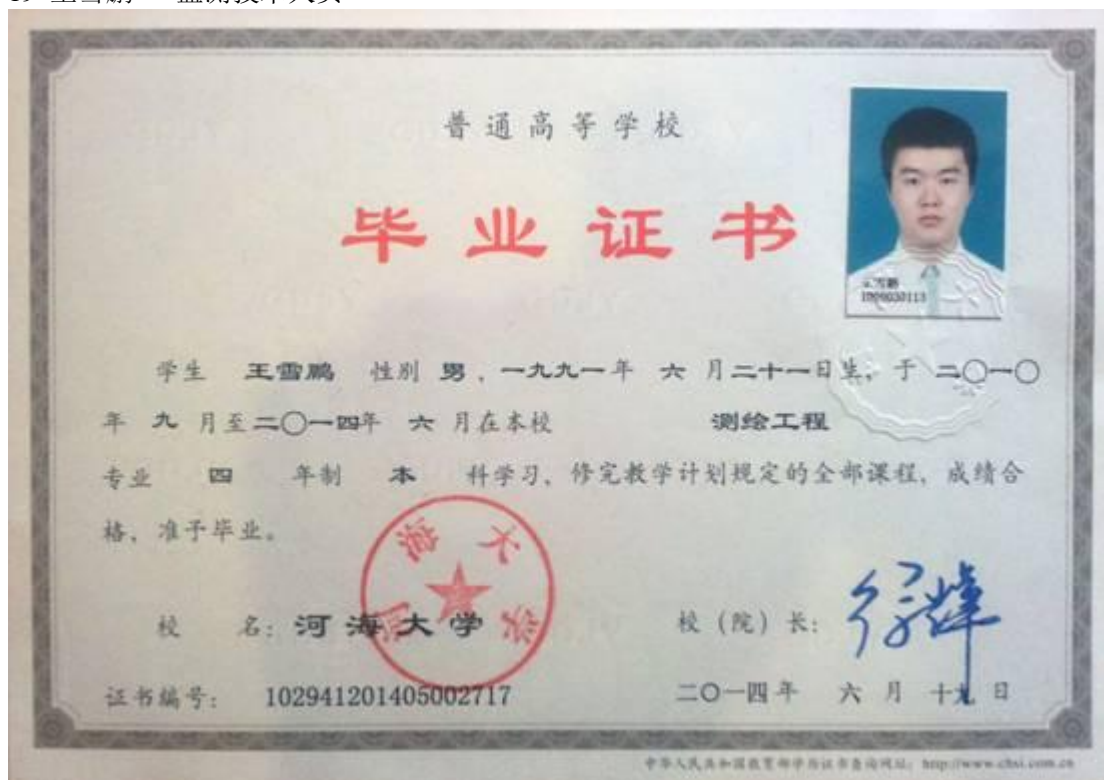 普通高等学校
毕业证书
王雪鹏
学生 王雪鹏 性别 男，一九九一年 六 月二十一日生，于 二〇一〇
年 九 月至二〇一四年 六 月在本校 测绘工程
专业 四 年制 本 科学习，修完教学计划规定的全部课程，成绩合
格，准予毕业。
河海大学
校 名：河海大学 校（院）长：徐辉
证书编号： 102941201405002717 二〇一四年 六 月 十九 日
中华人民共和国教育部学历证书查询网址：http://www.chsi.com.cn